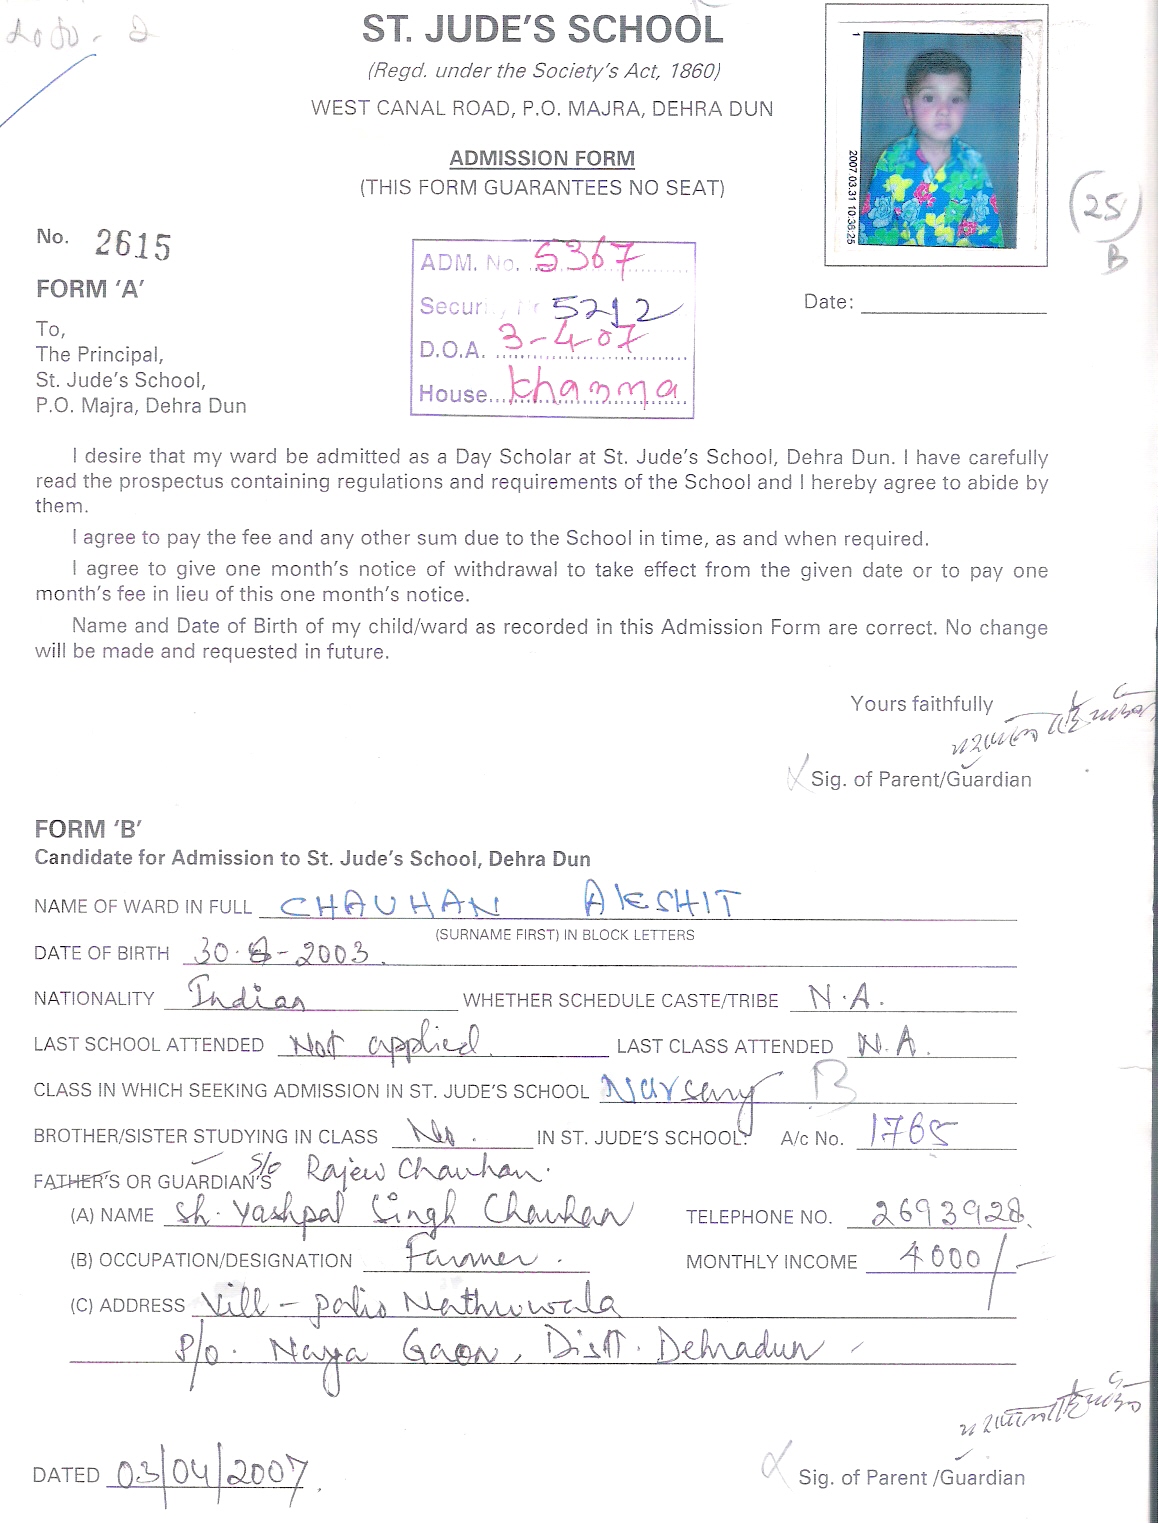 ST. JUDE'S SCHOOL
(Regd. under the Society's Act, 1860)
WEST CANAL ROAD, P.O. MAJRA, DEHRA DUN
ADMISSION FORM
(THIS FORM GUARANTEES NO SEAT)
1
2007.03.31 10:36:25
25
B
No. 2615
ADM. No. 5367
5212
D.O.A. 3-4-07
House
FORM 'A'
Date:
To,
The Principal,
St. Jude's School,
P.O. Majra, Dehra Dun
I desire that my ward be admitted as a Day Scholar at St. Jude's School, Dehra Dun. I have carefully
read the prospectus containing regulations and requirements of the School and I hereby agree to abide by
them.
I agree to pay the fee and any other sum due to the School in time, as and when required.
I agree to give one month's notice of withdrawal to take effect from the given date or to pay one
month's fee in lieu of this one month's notice.
Name and Date of Birth of my child/ward as recorded in this Admission Form are correct. No change
will be made and requested in future.
Yours faithfully
Sig. of Parent/Guardian
FORM 'B'
Candidate for Admission to St. Jude's School, Dehra Dun
NAME OF WARD IN FULL CHAUHAN AKSHIT
(SURNAME FIRST) IN BLOCK LETTERS
DATE OF BIRTH 30 - 2003
NATIONALITY Indian WHETHER SCHEDULE CASTE/TRIBE N.A.
LAST SCHOOL ATTENDED Not applied LAST CLASS ATTENDED N.A.
CLASS IN WHICH SEEKING ADMISSION IN ST. JUDE'S SCHOOL Nursery B
BROTHER/SISTER STUDYING IN CLASS IN ST. JUDE'S SCHOOL: A/c No. 1765
S/o Rajew Chauhan.
FATHER'S OR GUARDIAN'S
(A) NAME Sh. Yashpal Singh Chauhan TELEPHONE NO. 2693928
(B) OCCUPATION/DESIGNATION Farmer. MONTHLY INCOME 4000/-
(C) ADDRESS Vill - Nathuwala
P/o. Naya Gaon, Distt. Dehradun
DATED 03/04/2007.
Sig. of Parent /Guardian